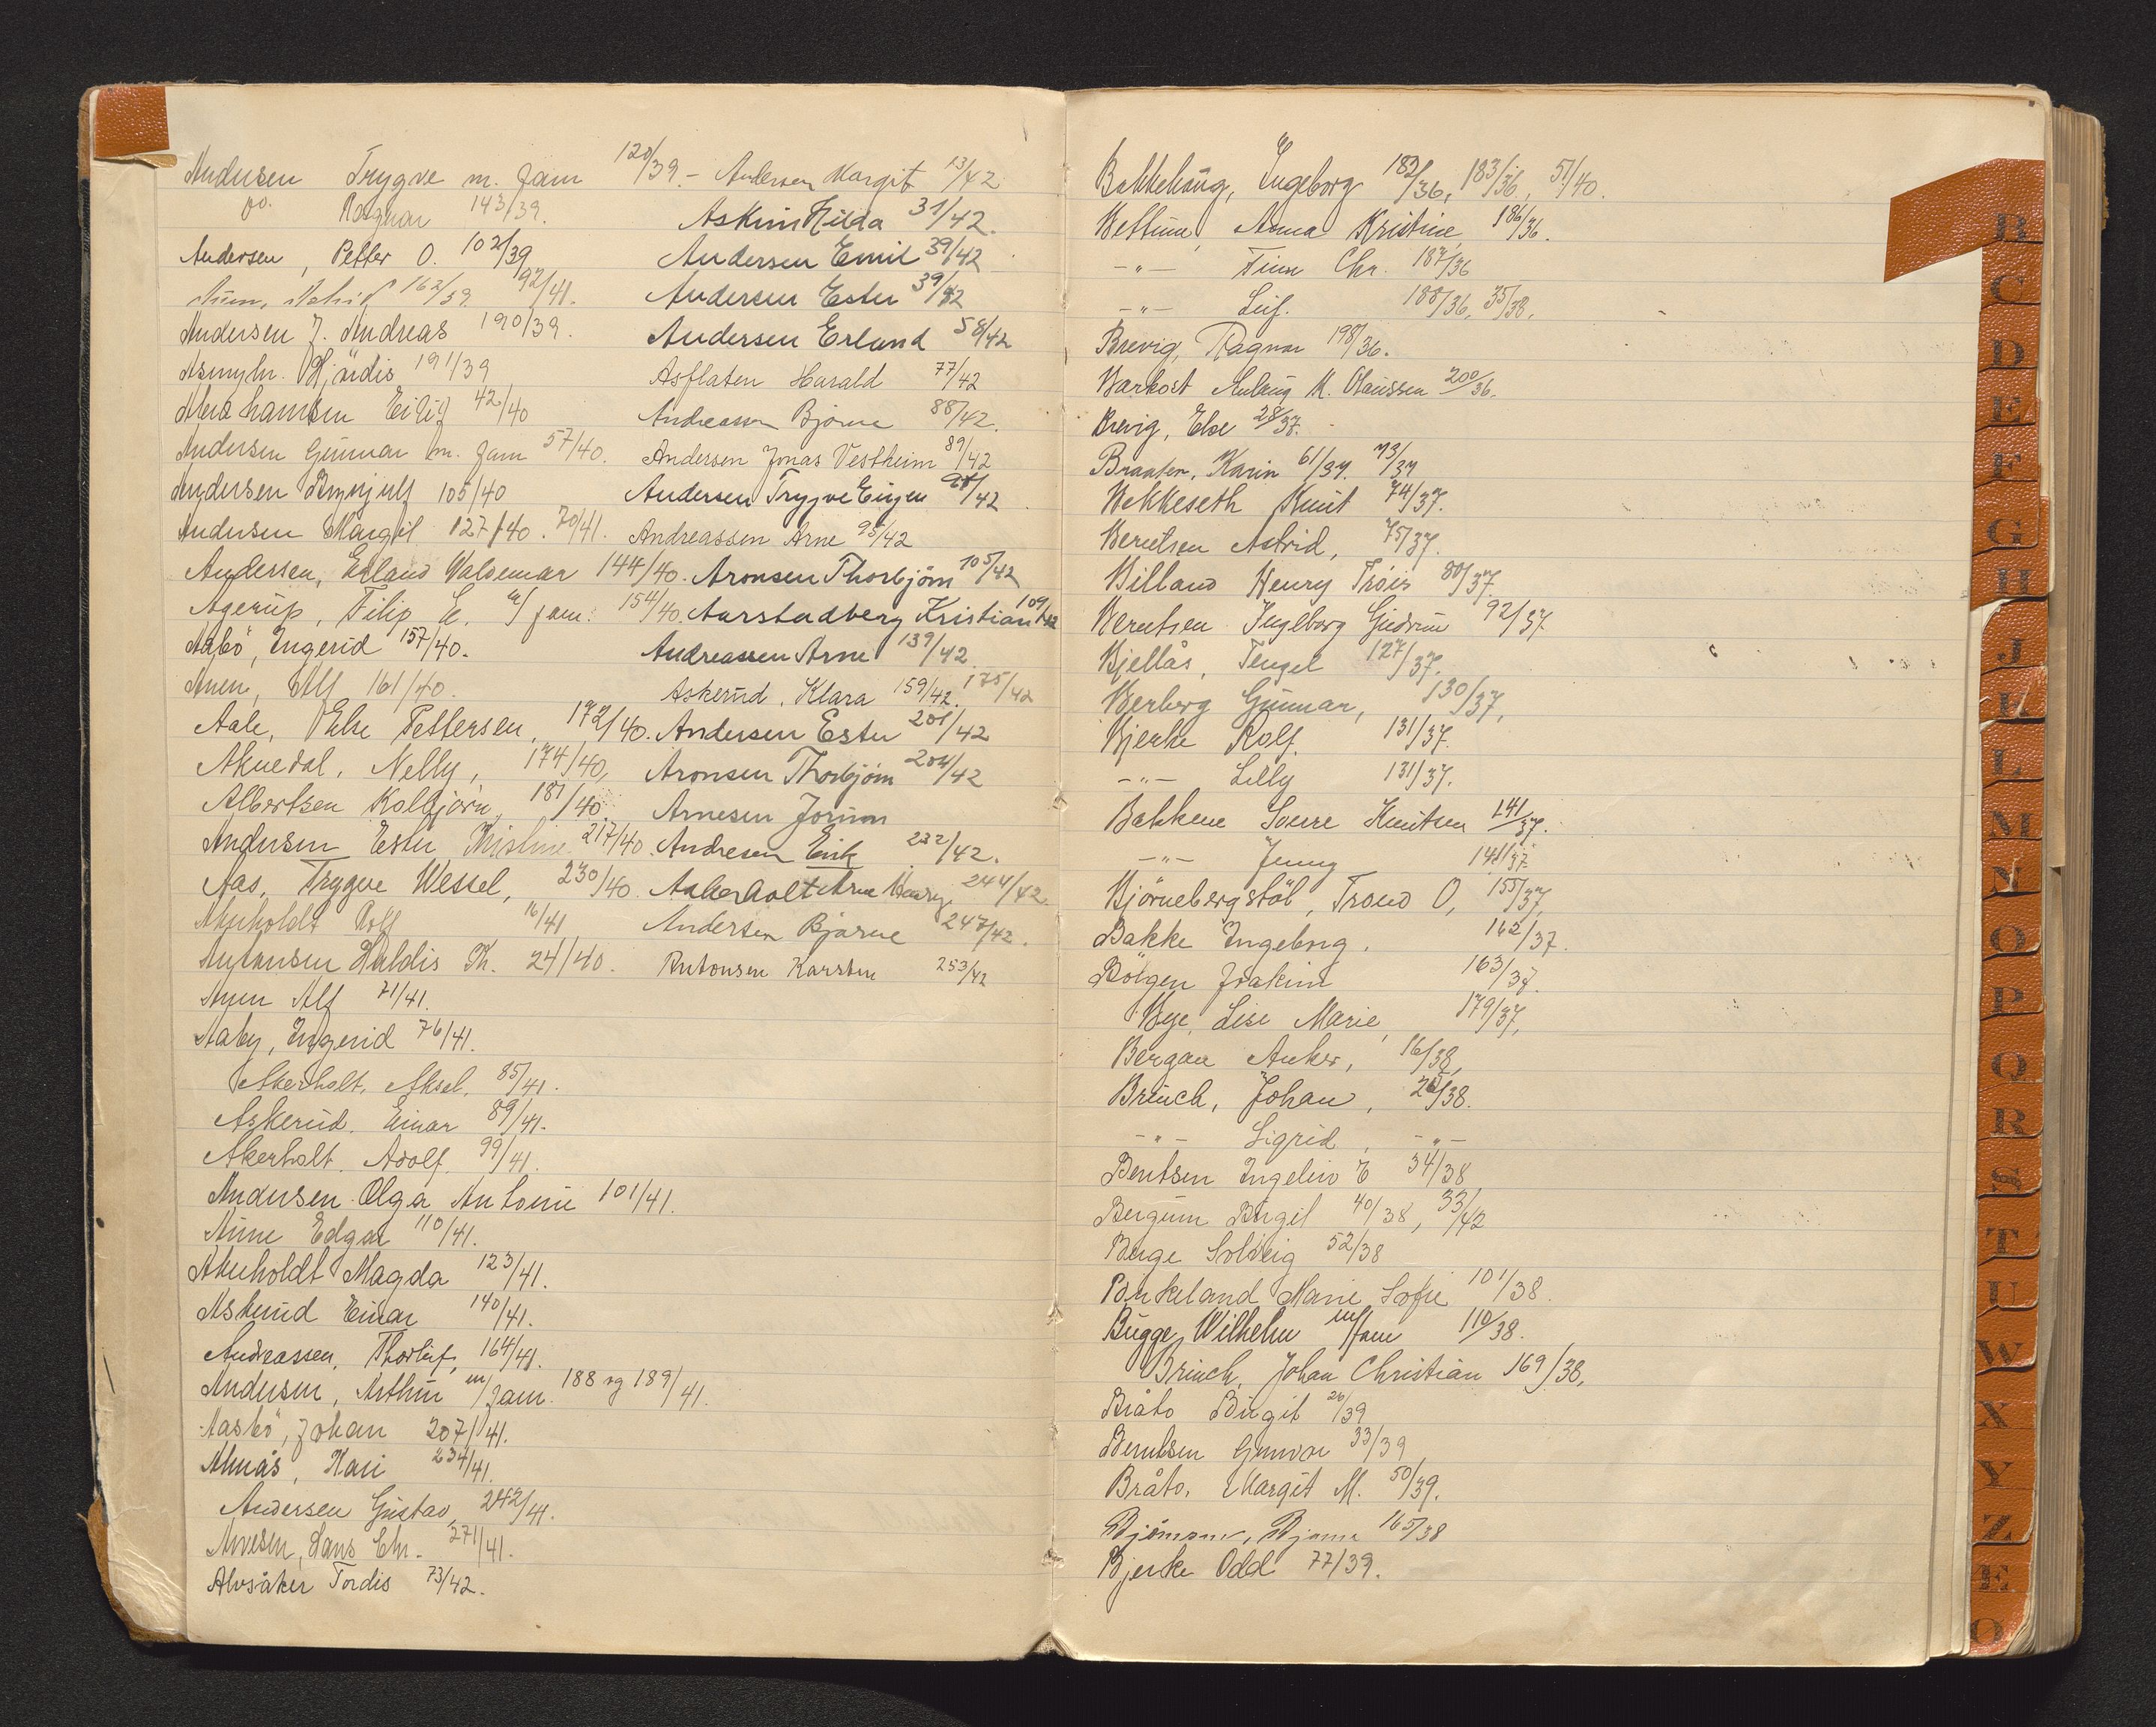 Andersen Trygve m. fam 120/39.-
do. Ragnar 143/39.
Andersen, Petter O. 102/39
162/39 92/41.
Andersen J. Andreas 190/39.
Hjördis 191/39
Eilif 42/40
Andersen Gunnar m. fam 57/40.
Andersen Brynjulf 105/40
Andersen Margit 127/40. 70/41.
Andersen, Erland Valdemar 144/40.
Agerup, Filip E. m/fam: 154/40.
Aasbö, Ingerid 157/40.
Auen, Alf 161/40.
Aale, Else Pettersen, 172/40.
Aknedal, Nelly, 174/40,
Albertsen Kolbjörn, 187/40.
Andersen Ester Kristine 217/40.
Aas, Trygve Wessel, 230/40.
Akerholdt Rolf 16/41
Antonsen Haldis Th. 24/40.
Auen Alf 71/41.
Aaby, Ingerid 76/41.
Akerholt, Aksel, 85/41.
Askerud. Einar 89/41.
Akerholt. Adolf. 99/41.
Andersen Olga Antonie 101/41.
Aune Edgar 110/41.
Akerholdt Magda 123/41.
Askerud Einar 140/41.
Andreassen, Thorleif, 164/41.
Andersen, Arthur m/fam. 188 og 189/41.
Aasbö, Johan 207/41.
Almås, Kari 234/41.
Andersen Gustav, 242/41.
Arvesen, Hans Chr. 271/41.
Alvsåker Tordis 73/42.
Andersen Margit 13/42
Askim Hilda 31/42.
Andersen Emil 39/42
Andersen Ester 39/42
Andersen Erland 58/42
Asflaten Harald 77/42
Andreassen Bjarne 88/42.
Andersen Jonas Vestheim 89/42
Andersen Trygve Eugen 91/42
Andreassen Arne 95/42
Aronsen Thorbjörn 105/42
Aarstadberg Kristian 109/42
Andreassen Arne 139/42
Askerud, Klara 159/42. 175/42
Andersen Ester 201/42
Aronsen Thorbjörn 204/42
Arnesen Jorunn
Andresen Erik 232/42.
Aakerholt Arne Henry, 244/42.
Andersen Bjarne 247/42.
Antonsen Karsten 253/42
Bakkehaug, Ingeborg 182/36, 183/36, 51/40.
Bettum, Anna Kristine, 186/36.
-"- Finn Chr. 187/36
-"- Leif. 188/36, 35/38.
Brevig, Ragnar 198/36.
Barkost M. Olaussen 200/36.
Brevig, Else 28/37.
Braaten, Karin 61/37. 73/37
Bekkeseth Knut 74/37.
Berntsen Astrid, 75/37.
Billand Henry Fróis 80/37.
Berntsen Ingeborg Gudrun 92/37
Bjellås, Tengel 127/37.
Berberg Gunnar, 130/37,
Bjerke Rolf. 131/37.
-"- Lilly 131/37.
Bakkene Sverre Knutsen 141/37.
-"- Jenny 141/37
Björnebergstöl, Trond O, 155/37,
Bakke Ingeborg. 162/37.
Bölgen Joakim 163/37.
Bye, Lise Marie, 179/37,
Bergan Anker, 16/38,
Brinch, Johan, 26/38.
-"- Sigrid, -"-
Bentsen Ingeleiv E 34/38
Bergum Birgit 40/38, 33/42
Berge Solveig 52/38
Birkeland Marie Sofie 101/38.
Bugge, Wilhelm m/fam 110/38.
Brinch, Johan Christian 169/38,
Bråto Birgit 26/39
Berntsen Gunvor 33/39
Bråto, Margit M. 50/39.
165/38
Bjerke Odd 77/39.
B
C
D
E
F
G
H
I
K
L
M
N
O
P
Q
R
S
T
U
W
X
Y
Z
Æ
Ø